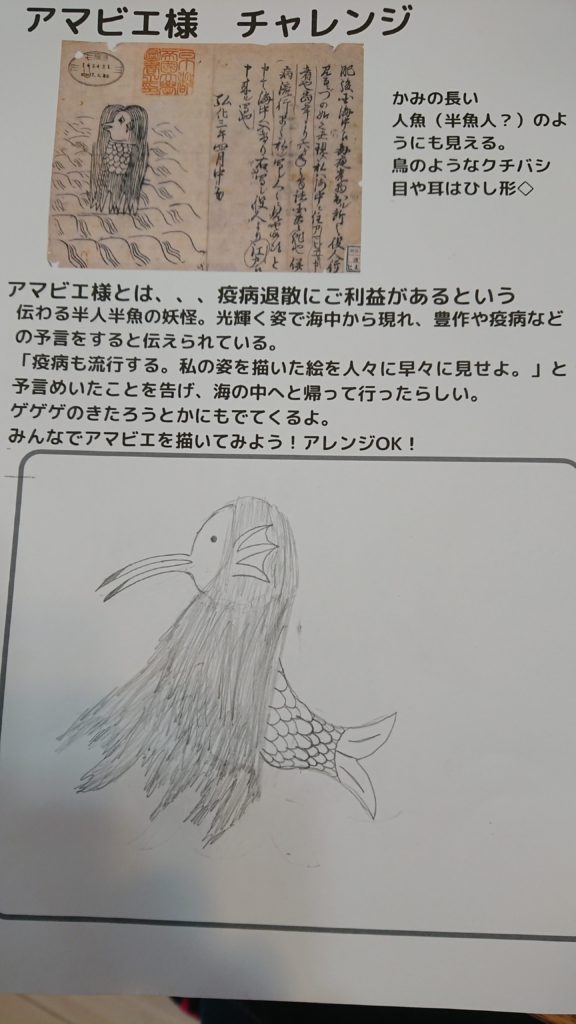 アマビエ様　チャレンジ
弘化三年四月中旬
かみの長い
人魚（半魚人？）のよ
うにも見える。
鳥のようなクチバシ
目や耳はひし形◇
アマビエ様とは、、、疫病退散にご利益があるという
伝わる半人半魚の妖怪。光輝く姿で海中から現れ、豊作や疫病など
の予言をすると伝えられている。
「疫病も流行する。私の姿を描いた絵を人々に早々に見せよ。」と
予言めいたことを告げ、海の中へと帰って行ったらしい。
ゲゲゲのきたろうとかにもでてくるよ。
みんなでアマビエを描いてみよう！アレンジOK！